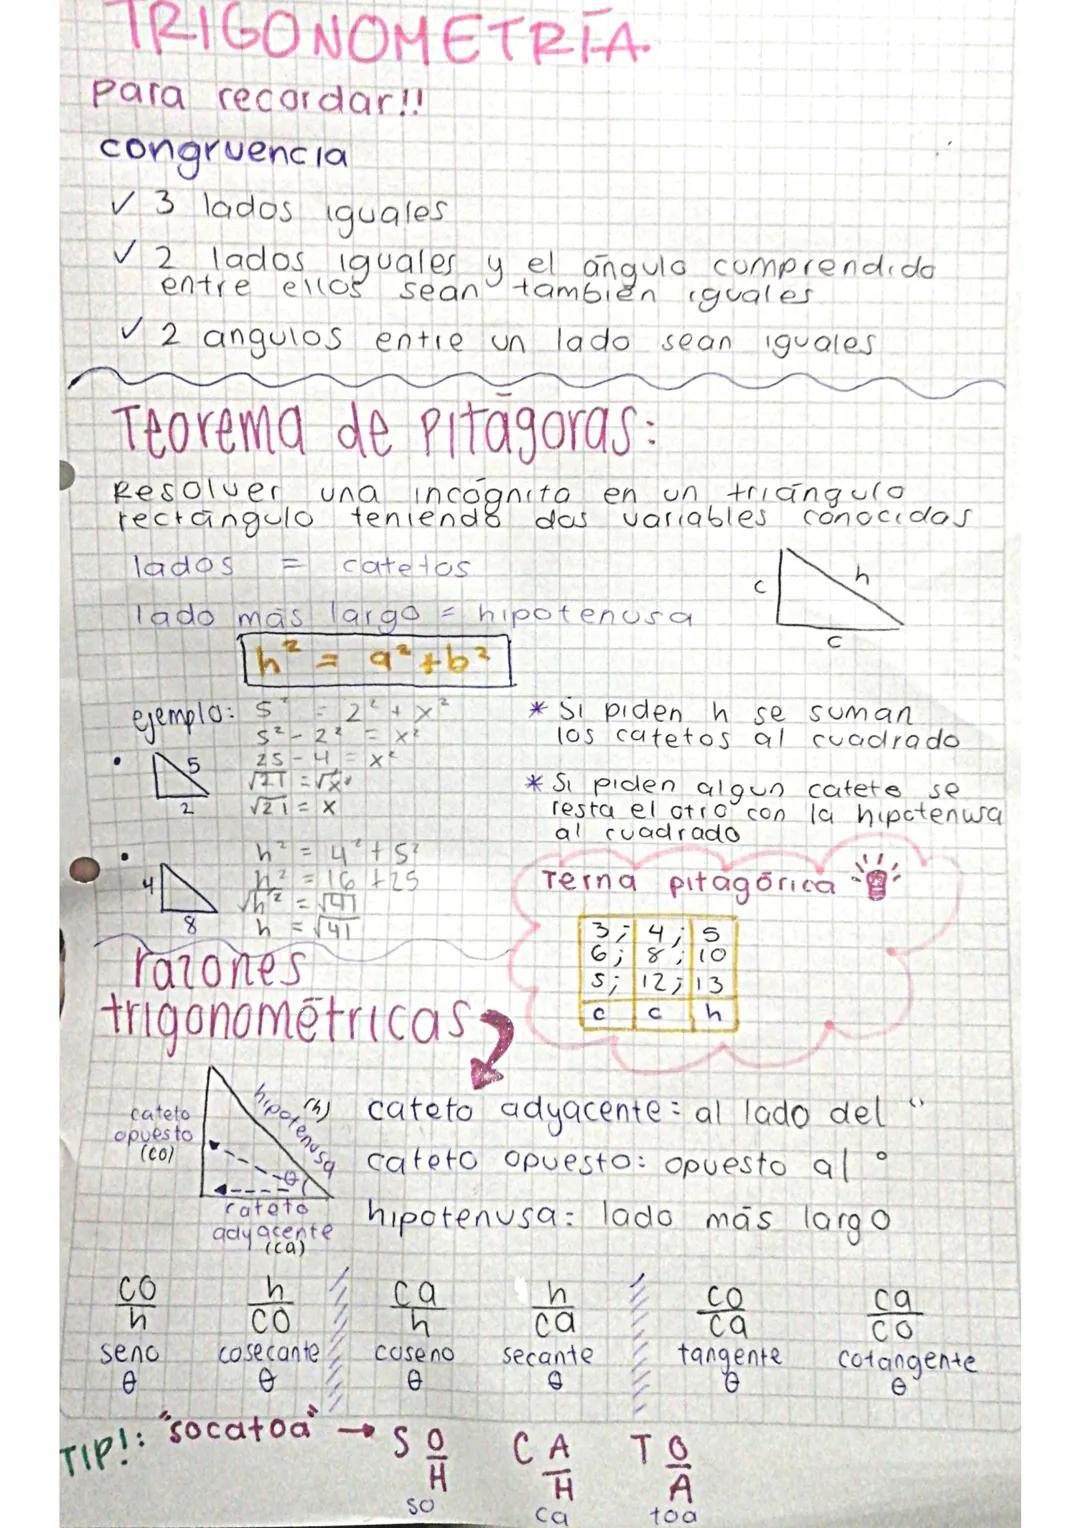 TRIGONOMETRÍA.
Para recordar!!
congruencia
✓ 3 lados iguales
✓ 2 lados iguales y el ángulo comprendido
entre ellos sean también iguales
✓ 2 angulos entre un lado sean iguales
Teorema de Pitágoras:
Resolver una incógnita en un triángulo
rectángulo teniendo dos variables conocidas
lados = catetos
lado más largo = hipotenusa
c
h
c
h² = a² + b²
ejemplo:
5² = 2² + x²
5² - 2² = x²
25 - 4 = x²
√21 = √x²
√21 = x
5
2
* Si piden h se suman
los catetos al cuadrado
* Si piden algun catete se
resta el otro con la hipotenusa
al cuadrado
4
8
h² = 4² + 5²
h² = 16 + 25
√h² = √41
h = √41
Terna pitagórica
3; 4; 5
6; 8; 10
5; 12; 13
c c h
razones
trigonométricas
cateto
opuesto
(co)
hipotenusa
(h)
θ
cateto
adyacente
(ca)
cateto adyacente: al lado del °
cateto opuesto: opuesto al °
hipotenusa: lado más largo
co/h h/co ca/h h/ca co/ca ca/co
seno cosecante coseno secante tangente cotangente
θ θ θ θ θ θ
TIP!: "socatoa" → S O/H C A/H T O/A
so ca toa